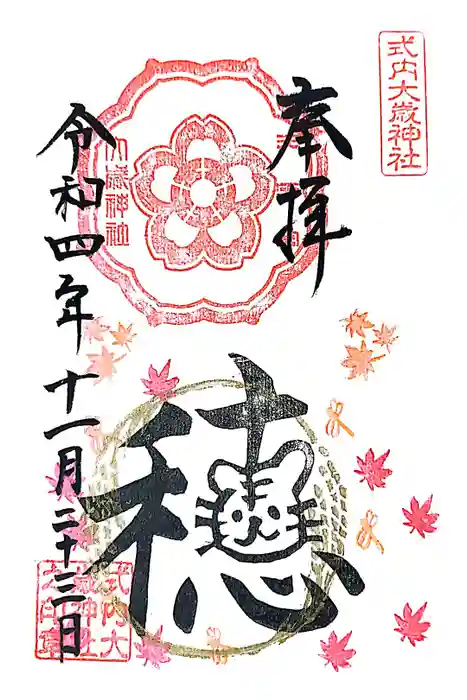 式内大歳神社
奉拝
大歳神社
穂
令和四年十一月二十三日
式内大
歳神社
之印章